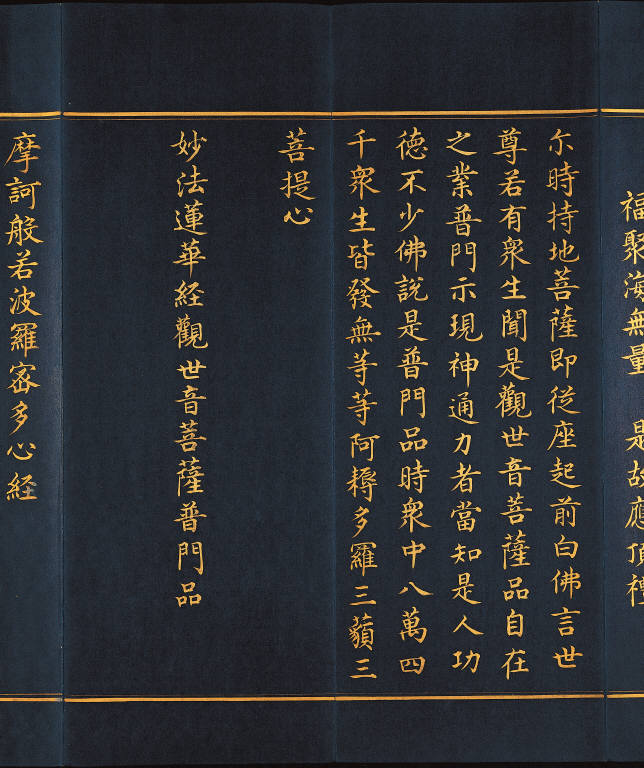 福聚海無量 是故應頂禮
尒時持地菩薩即從座起前白佛言世
尊若有衆生聞是觀世音菩薩品自在
之業普門示現神通力者當知是人功
德不少佛說是普門品時衆中八萬四
千衆生皆發無等等阿耨多羅三藐三
菩提心
妙法蓮華経觀世音菩薩普門品
摩訶般若波羅蜜多心経